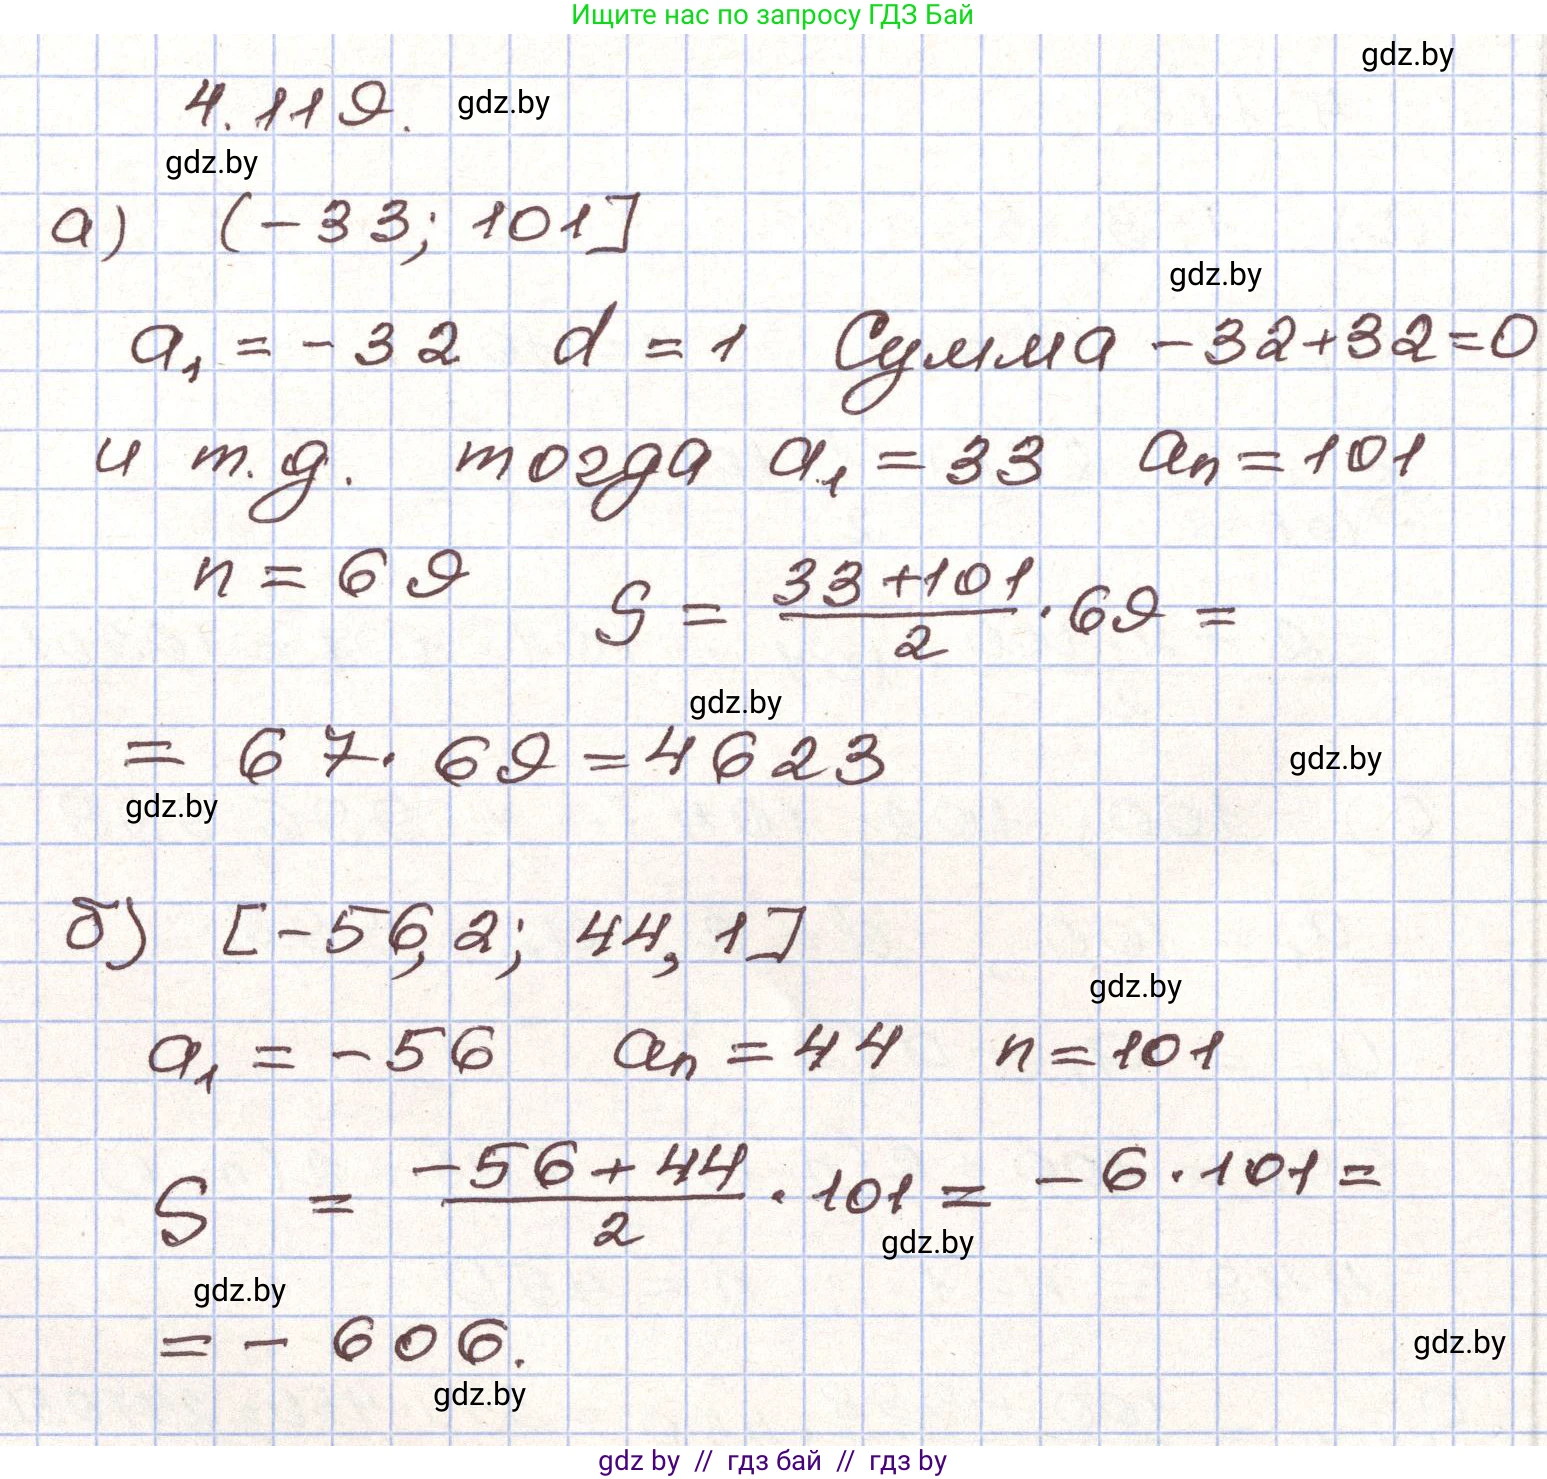 Ищите нас по запросу ГДЗ Бай
gdz.by
4.119. gdz.by
gdz.by
а) (-33; 101]
gdz.by
a₁ = -32 d = 1 Сумма -32+32=0
и т.д. тогда a₁ = 33 aₙ = 101
n = 69 S = (33+101)/2 · 69 =
gdz.by
= 67 · 69 = 4623
gdz.by
gdz.by
б) [-56,2; 44,1]
gdz.by
a₁ = -56 aₙ = 44 n = 101
S = (-56+44)/2 · 101 = -6 · 101 =
gdz.by
gdz.by
= - 606.
gdz.by
gdz.by
gdz by // гдз бай // гдз by